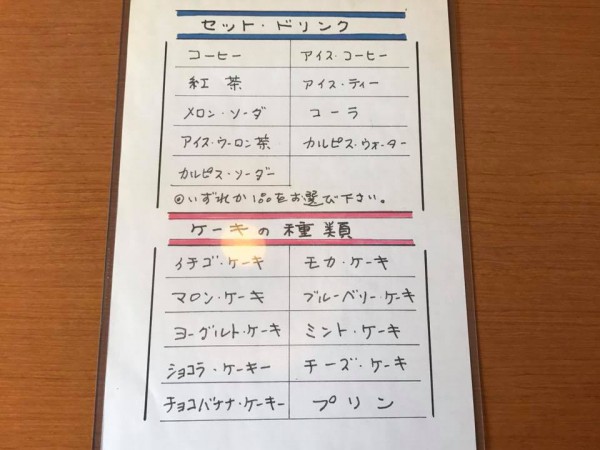 セット・ドリンク
コーヒー アイス・コーヒー
紅茶 アイス・ティー
メロン・ソーダ コーラ
アイス・ウーロン茶 カルピス・ウォーター
カルピス・ソーダー
◎いずれか1品をお選び下さい。
ケーキの種類
イチゴ・ケーキ モカ・ケーキ
マロン・ケーキ ブルーベリー・ケーキ
ヨーグルト・ケーキ ミント・ケーキ
ショコラ・ケーキー チーズ・ケーキ
チョコバナナ・ケーキー プリン